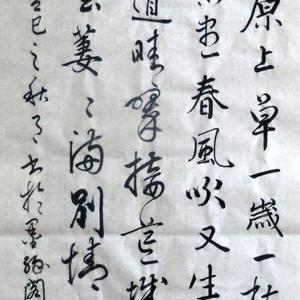 原上草一歲一枯
盡春風吹又生
道晴翠接荒城
去萋〻滿別情
巳之秋月书於墨阁